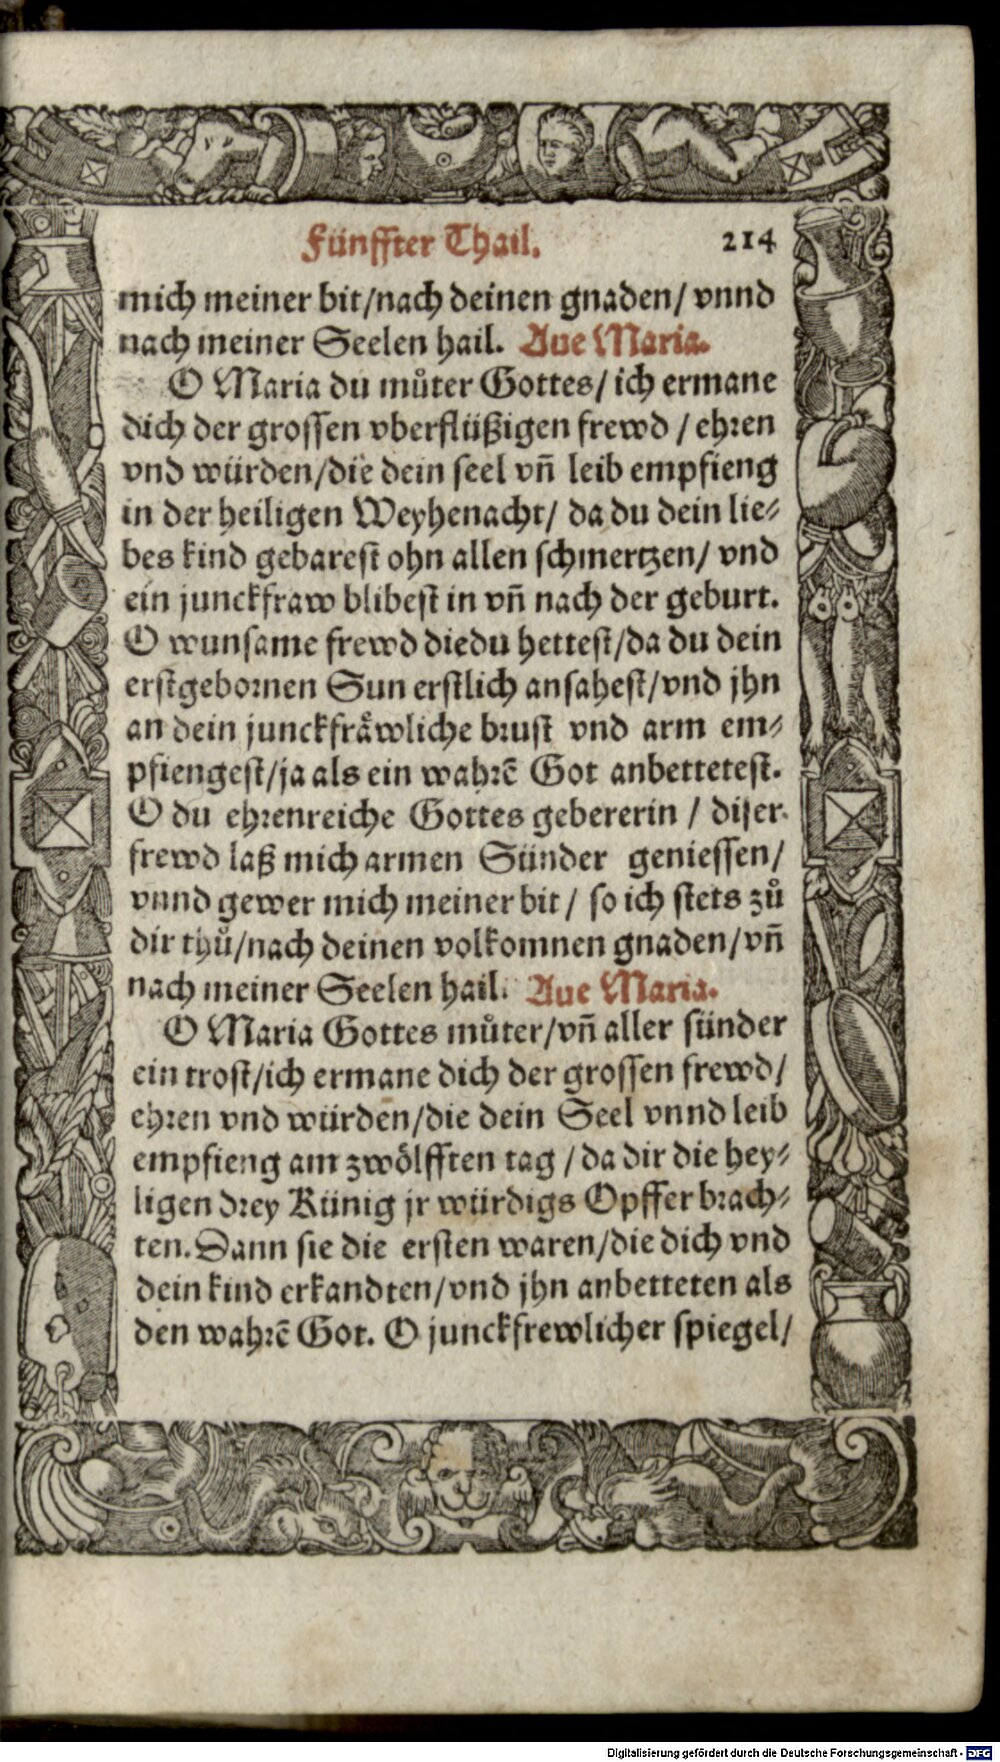 Fünffter Thail. 214
mich meiner bit/nach deinen gnaden/ vnnd
nach meiner Seelen hail. Aue Maria.
O Maria du můter Gottes/ ich ermane
dich der grossen vberflüßigen frewd / ehren
vnd würden/die dein seel vñ leib empfieng
in der heiligen Weyhenacht/ da du dein lie⸗
bes kind gebarest ohn allen schmertzen/ vnd
ein junckfraw blibest in vñ nach der geburt.
O wunsame frewd diedu hettest/da du dein
erstgebornen Sun erstlich ansahest/vnd jhn
an dein junckfräwliche brust vnd arm em⸗
pfiengest/ja als ein wahrẽ Got anbettetest.
O du ehrenreiche Gottes gebererin / diser
frewd laß mich armen Sünder geniessen/
vnnd gewer mich meiner bit / so ich stets zů
dir thů/nach deinen volkomnen gnaden/vñ
nach meiner Seelen hail. Aue Maria.
O Maria Gottes můter/vñ aller sünder
ein trost/ich ermane dich der grossen frewd/
ehren vnd würden/die dein Seel vnnd leib
empfieng am zwölfften tag / da dir die hey⸗
ligen drey Künig jr würdigs Opffer brach⸗
ten. Dann sie die ersten waren/die dich vnd
dein kind erkandten/vnd jhn anbetteten als
den wahrẽ Got. O junckfrewlicher spiegel/
Digitalisierung gefördert durch die Deutsche Forschungsgemeinschaft - DFG